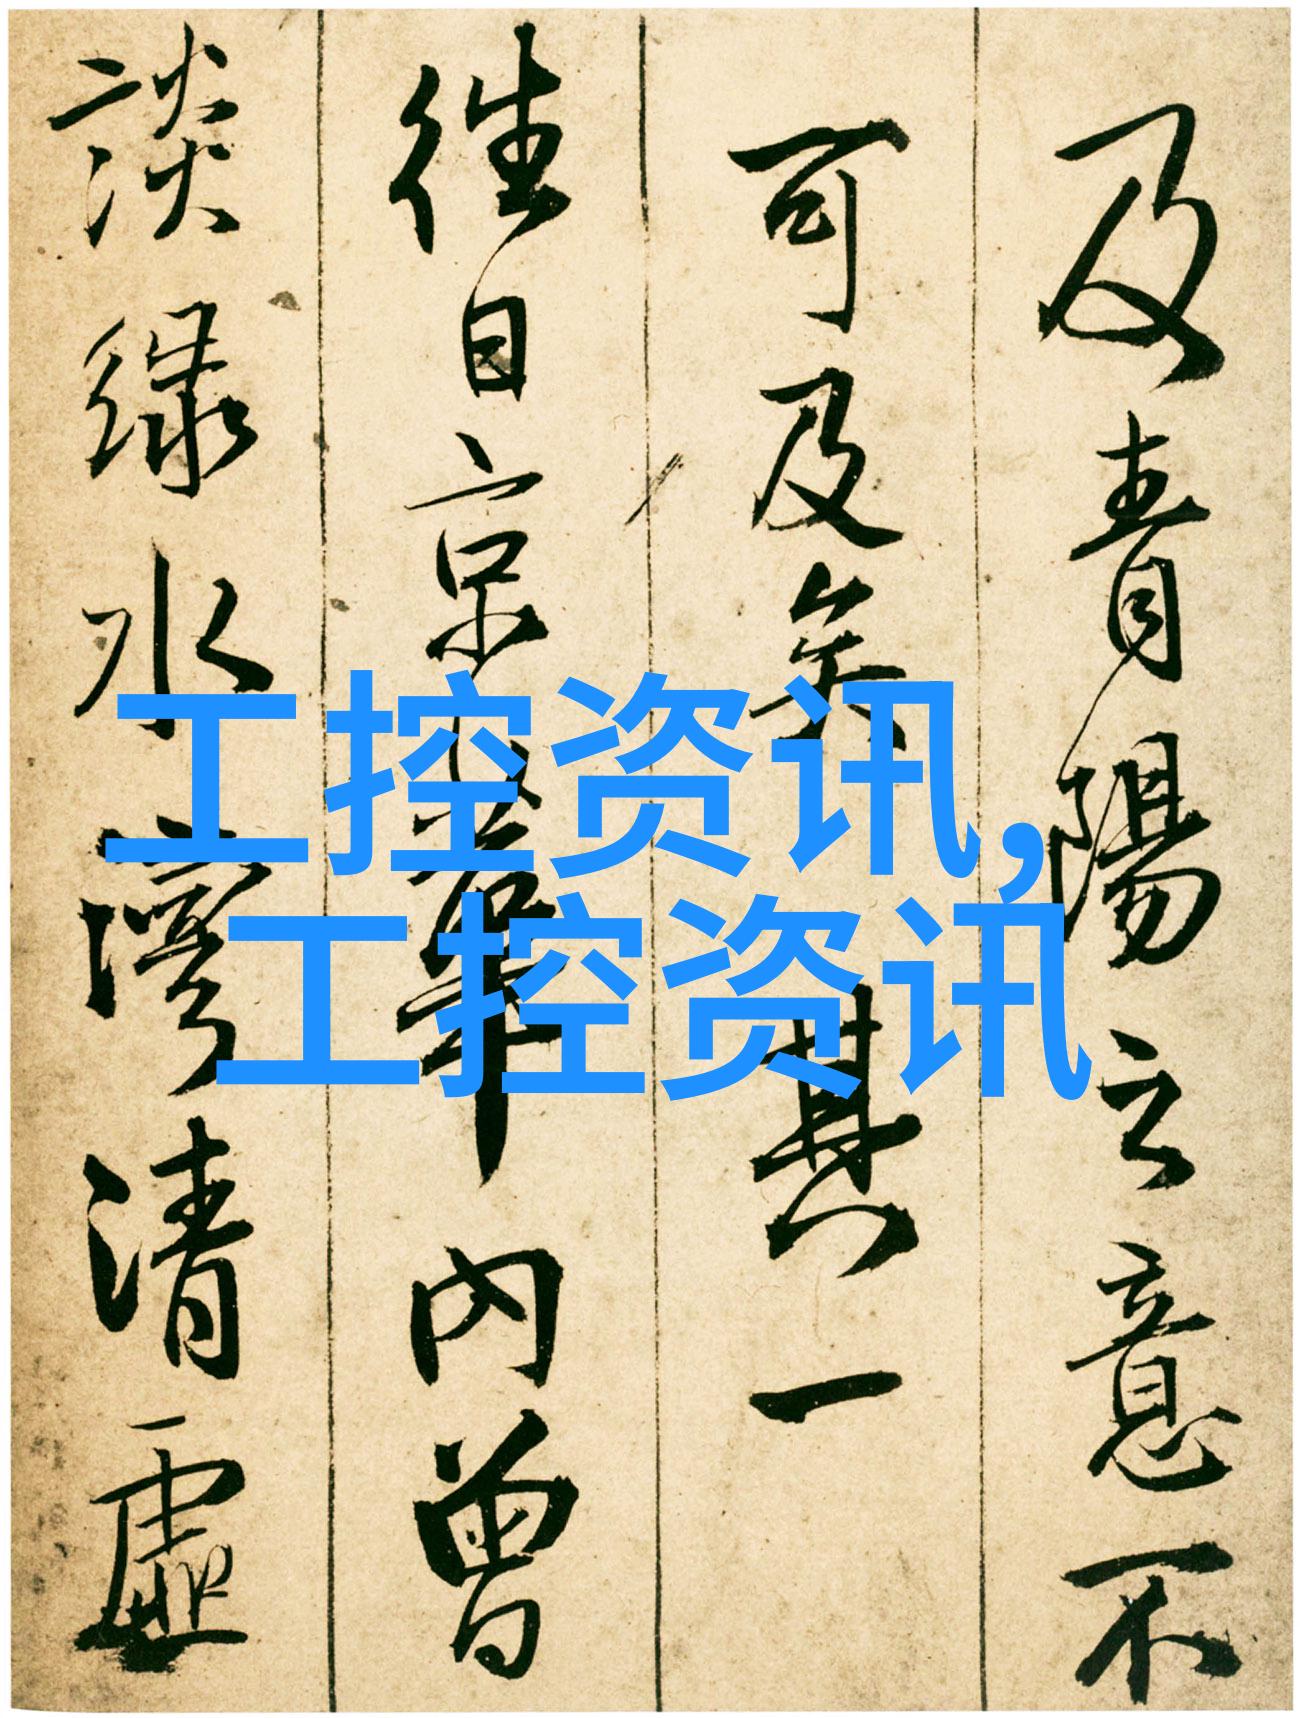 及青陽之意不
可及矣其一
往日京華內曾
談緑水灣清虛
工控资讯,
工控资讯